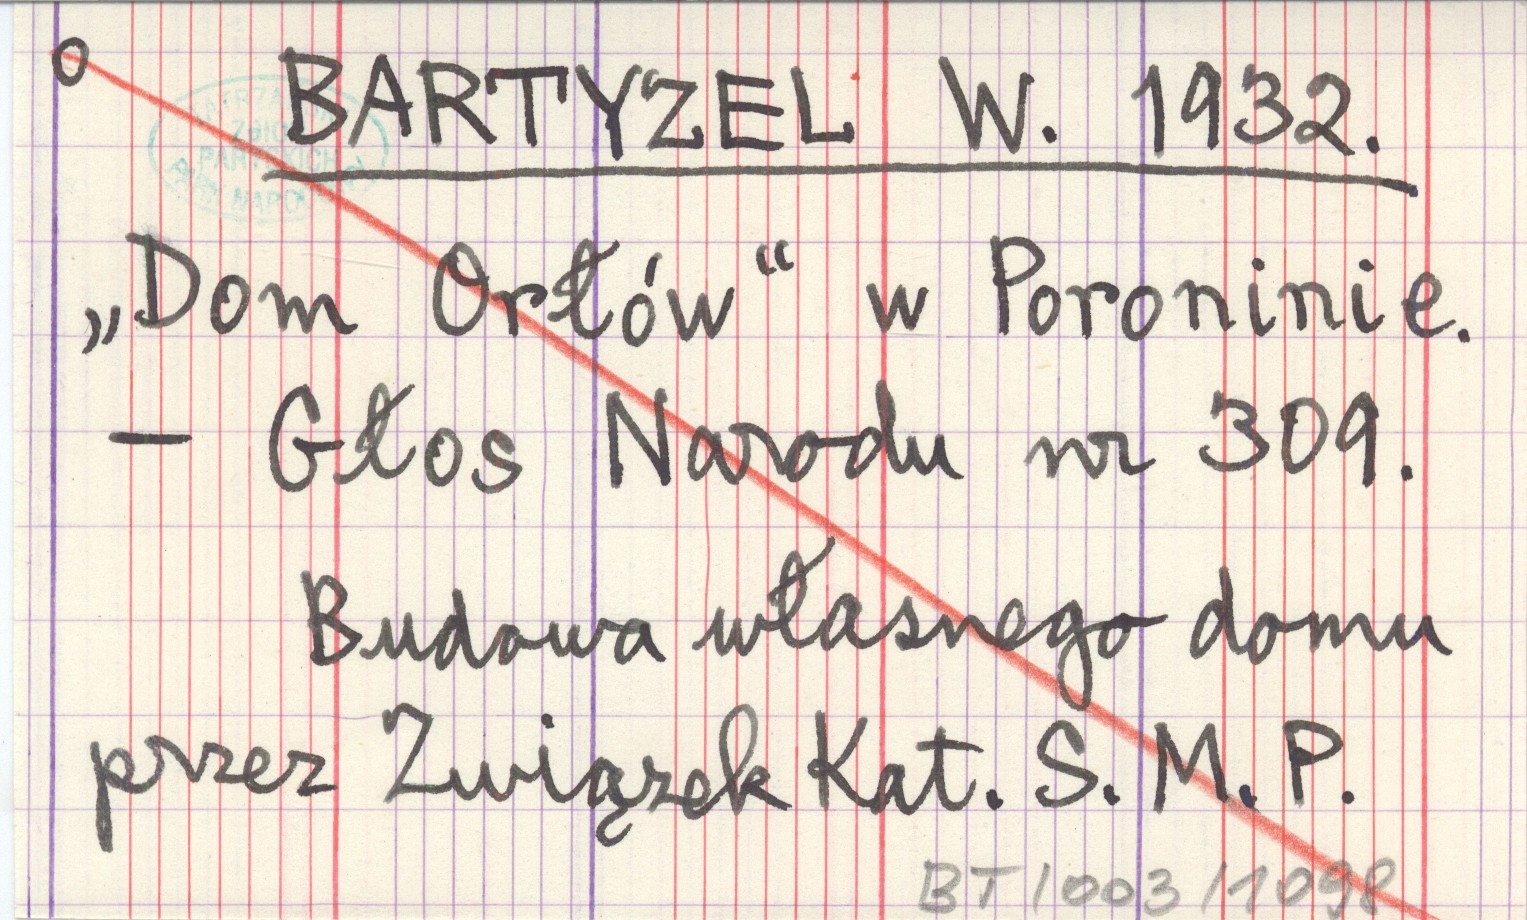 O
BARTYZEL W. 1932.
„Dom Orłów“ w Poroninie.
— Głos Narodu nr 309.
Budowa własnego domu
przez Związek Kat. S. M. P.
BT/003/1098